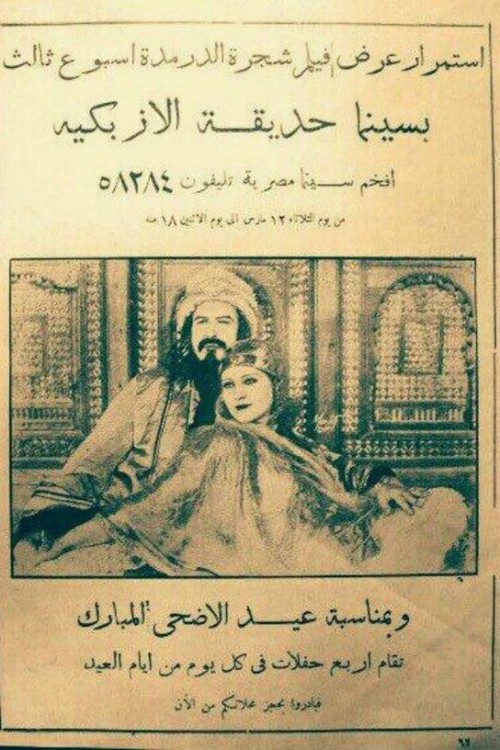 استمرار عرض فيلم شجرة الدر مدة اسبوع ثالث
بسينما حديقة الازبكيه
افخم سينما مصرية تليفون ٥٨٢٨٤
من يوم الثلاثاء ١٢ مارس الى يوم الاثنين ١٨ منه
وبمناسبة عيد الاضحى المبارك
تقام اربع حفلات فى كل يوم من ايام العيد
فبادروا بحجز محلاتكم من الآن
٦٧